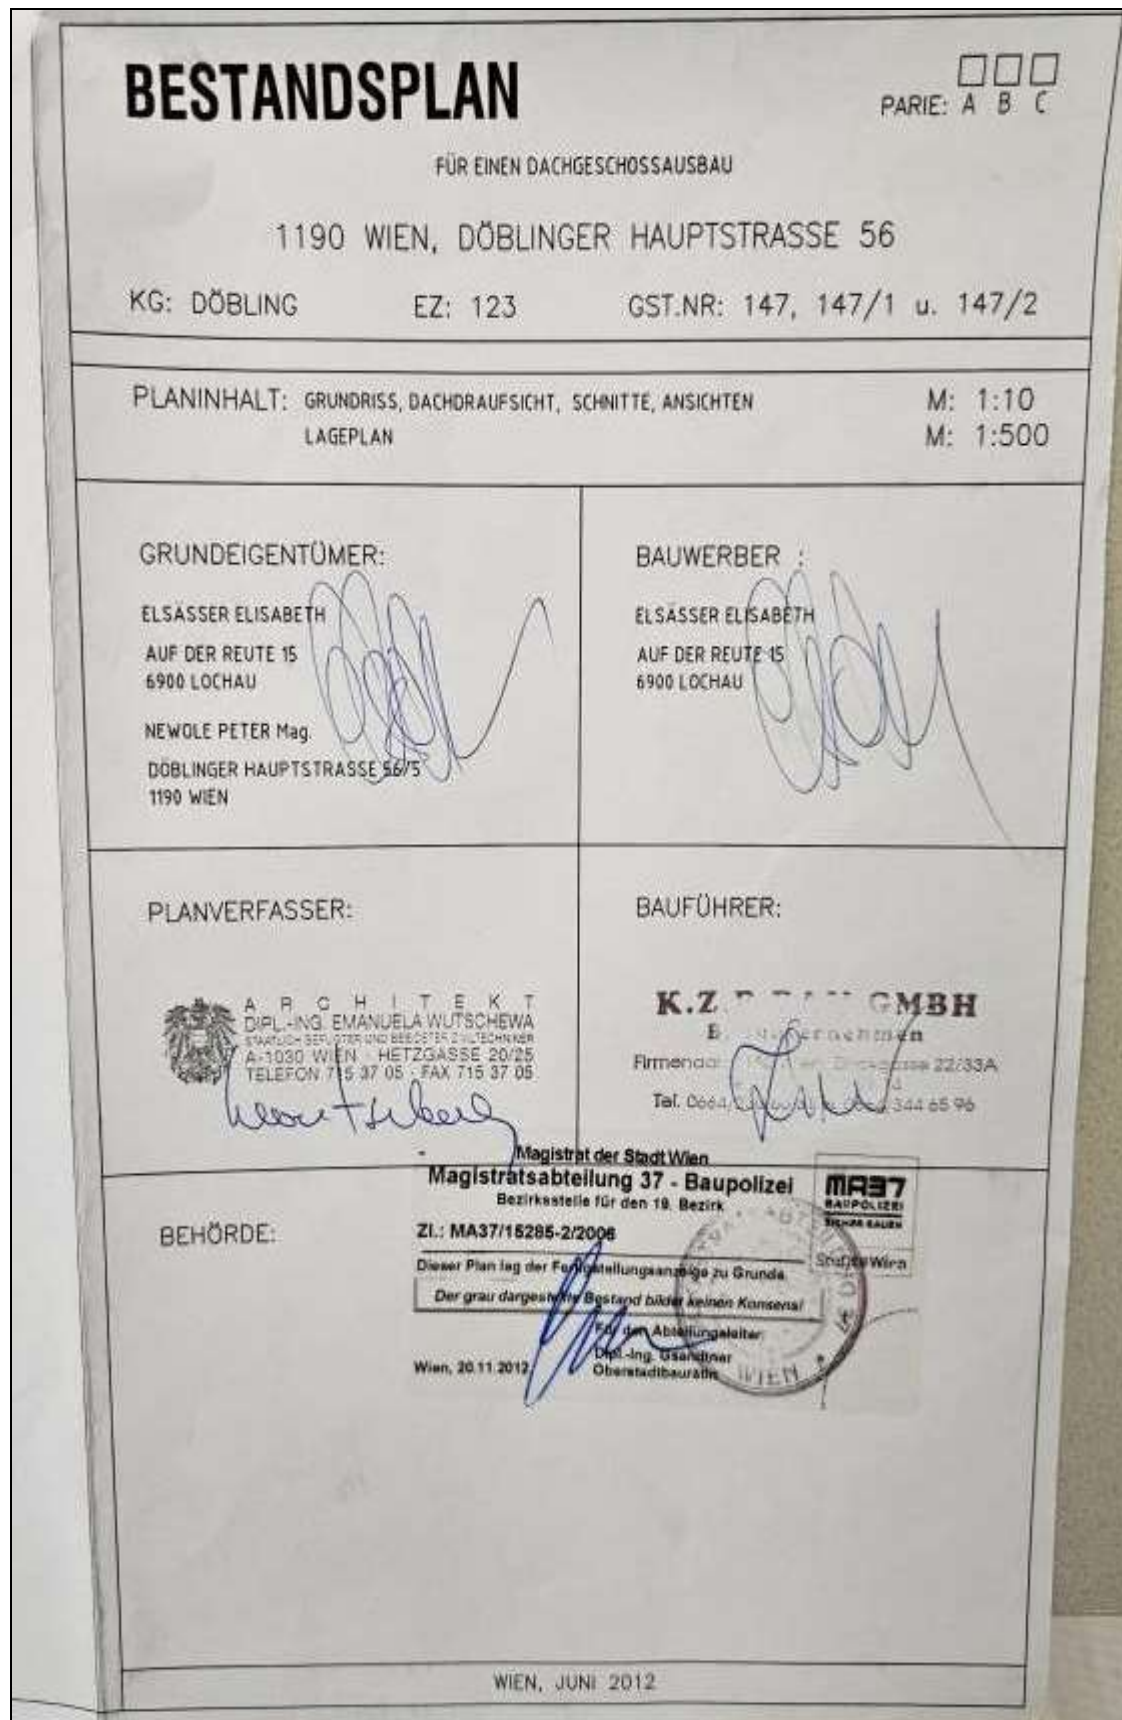 BESTANDSPLAN
PARIE: A B C
FÜR EINEN DACHGESCHOSSAUSBAU
1190 WIEN, DÖBLINGER HAUPTSTRASSE 56
KG: DÖBLING EZ: 123 GST.NR: 147, 147/1 u. 147/2
PLANINHALT: GRUNDRISS, DACHDRAUFSICHT, SCHNITTE, ANSICHTEN M: 1:10
LAGEPLAN M: 1:500
GRUNDEIGENTÜMER:
ELSÄSSER ELISABETH
AUF DER REUTE 15
6900 LOCHAU
NEWOLE PETER Mag.
DÖBLINGER HAUPTSTRASSE 56/5
1190 WIEN
BAUWERBER :
ELSÄSSER ELISABETH
AUF DER REUTE 15
6900 LOCHAU
PLANVERFASSER:
ARCHITEKT
DIPL.-ING. EMANUELA WUTSCHEWA
STAATLICH BEFUGTER UND BEEIDETER ZIVILTECHNIKER
A-1030 WIEN · HETZGASSE 20/25
TELEFON 715 37 05 · FAX 715 37 05
BAUFÜHRER:
K.Z GMBH
22/33A
Tel. 0664/ 344 65 96
BEHÖRDE:
Magistrat der Stadt Wien
Magistratsabteilung 37 - Baupolizei
Bezirksstelle für den 19. Bezirk
Zl.: MA37/15285-2/2006
Dieser Plan lag der Fertigstellungsanzeige zu Grunde.
Der grau dargestellte Bestand bildet keinen Konsens!
Für den Abteilungsleiter:
Dipl.-Ing. Gsandtner
Wien, 20.11.2012 Oberstadtbaurätin
MA37
BAUPOLIZEI
SICHER BAUEN
StaDt Wien
WIEN
WIEN, JUNI 2012